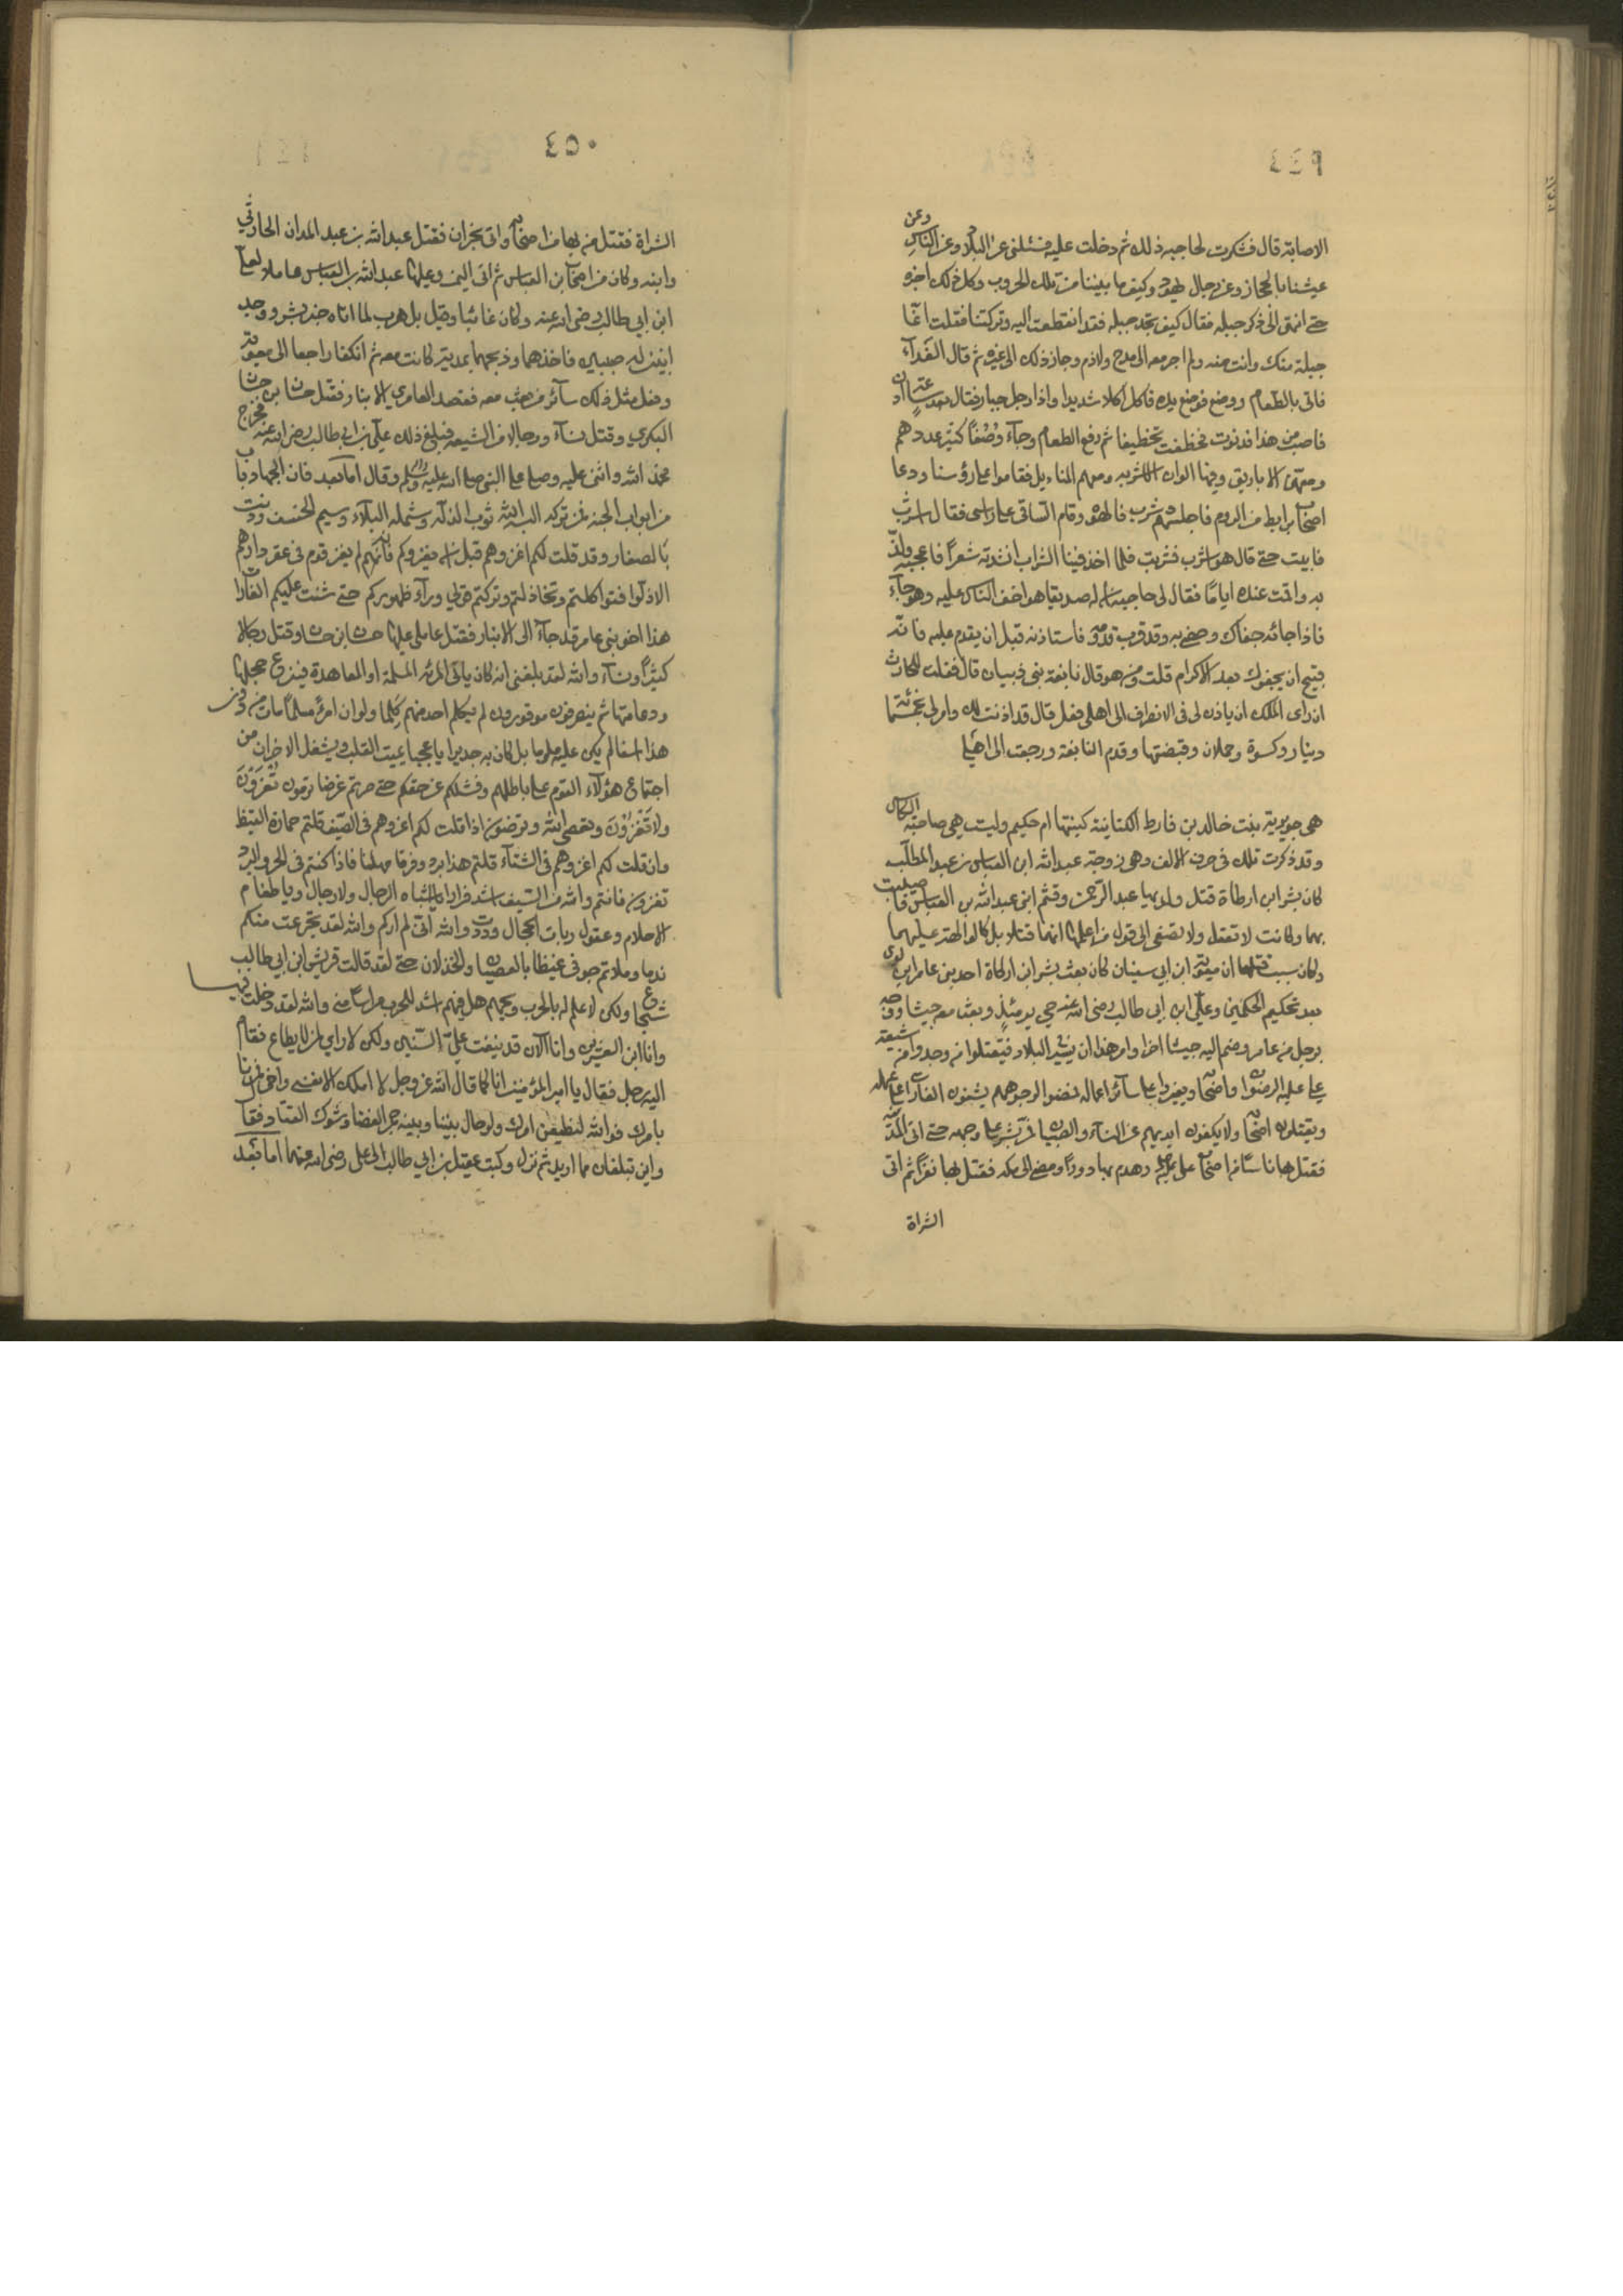 ٤٤٩
الاصابة قال فشكرت لحاجبه ذلك ثم دخلت عليه فسئلنى عن البلاد وعن الناس وعن
عيشنا بالحجاز وعن رجال يهود وكيف ما بيننا من تلك الحروب وكل ذلك اخبره
حتى انتهى الى ذكر جبله فقال كيف تجد جبله فقد انقطعت اليه وتركتنا فقلت انما
جبلة منك وانت منه ولم اجر معه الى مدح ولا ذم وجاز ذلك الى غيره ثم قال الغدآء
فاتى بالطعام ووضع فوضع يده فاكل اكلا شديدا واذا رجل جبار فقال بعد ساعة ادن
فاصب من هذا فدنوت فخططت تخطيطا ثم رفع الطعام وجآء وصفا كثير عددهم
ومعهم الاباريق وفيها الوان الاشربه ومعهم المناديل فقاموا على رؤسنا ودعا
اصحاب برابط من الروم فاجلسهم وشرب فالهوه وقام الساقى على راسى فقال اشرب
فابيت حتى قال هو اشرب فشربت فلما اخذ فينا الشراب انشدته شعرا فاعجبه ولذ
به واقمت عنده اياما فقال لى حاجبه ان له صديقا هو اخف الناس عليه وهو جآء
فاذا جائه جفاك وحض به وقد قرب قدومه فاستاذنه قبل ان يقدم عليه فانه
قبيح ان يجفوك بعد الاكرام قلت ومن هو قال نابغة بنى ذبيان قال فقلت للحارث
ان راى الملك ان ياذن لى فى الانصراف الى اهلى فعل قال قد اذنت لك وامر لى بخمسمائة
دينار وكسوة وحملان وقبضتها وقدم النابغة ورجعت الى اهلى
هى جويرية بنت خالد بن قارط الكنانية كنيتها ام حكيم وليست هى صاحبة الكاس
وقد ذكرت تلك فى حرف الالف وهى زوجة عبد الله ابن العباس بن عبد المطلب
كان بسر ابن ارطاة قتل ولديها عبد الرحمن وقثم ابنى عبد الله بن العباس فاصيبت
بهما وكانت لا تعقل ولا تصغى الى قول من اعلمها انهما قتلا
وكان سبب قتلهما ان معوية ابن ابى سفيان كان بعث بسر ابن ارطاة احد بنى عامر ابن لوى
بعد تحكيم الحكمين وعلى ابن ابى طالب رضى الله عنه حى يومئذ وبعث معه جيشا ووجه
برجل من عامر وضم اليه جيشا اخر وامر هذا ان يسير البلاد فيقتلوا من وجدوا من شيعة
على عليه الرضوان واصحابه ويغيروا على سائر اعماله فمضوا لوجوههم يشنون الغارات على عماله
ويقتلون اصحابه ولا يكفون ايديهم عن النسآء والصبيان فمر بسر على وجهه حتى اتى المدينة
فقتل بها ناسا من اصحاب على وهدم بها دورا ومضى الى مكه فقتل بها نفرا ثم اتى
السراة
٤٥٠
السراة فقتل من بها من اصحابه واتى نجران فقتل عبد الله بن عبد المدان الحارثى
وابنه وكان من اصحاب ابن العباس ثم اتى اليمن وعليها عبد الله بن العباس عاملا لعلى
ابن ابى طالب رضى الله عنه وكان غائبا وقيل بل هرب لما اتاه جند بسر ووجد
ابنين له صبيان فاخذهما وذبحهما بمدية كانت معه ثم انكفا راجعا الى معوية
وفعل مثل ذلك سآئر من بعث معه فقصد العامرى الانبار فقتل حسان ابن حسان
البكرى وقتل نسآء ورجالا من الشيعه فبلغ ذلك على بن ابى طالب رضى الله عنه فخرج
فحمد الله واثنى عليه وصلى على النبى صلى الله عليه وسلم وقال اما بعد فان الجهاد باب
من ابواب الجنه فمن تركه البسه الله ثوب الذله وشمله البلآء وسيم الخسف وديث
بالصغار وقد قلت لكم اغزوهم قبل ان يغزوكم فانهم لم يغز قوم فى عقر دارهم
الا ذلوا فتواكلتم وتخاذلتم وتركتم قولى ورآء ظهوركم حتى شنت عليكم الغارات
هذا اخو بنى عامر قد جآء الى الانبار فقتل عاملى عليها حسان ابن حسان وقتل رجالا
كثيرا ونسآء والله لقد بلغنى انه كان ياتى المرئه المسلمة او المعاهدة فينزع حجلها
ورعاثها ثم ينصرفون موفورون لم يكلم احد منهم كلما ولو ان امرء مسلما مات من دون
هذا اسفا لم يكن عليه ملوما بل كان به جديرا يا عجبا يميت القلب ويشغل الاحزان من
اجتماع هؤلآء القوم على باطلهم وفشلكم عن حقكم حتى صرتم غرضا ترمون تغزون
ولا تغزون ويعصى الله وترضون اذا قلت لكم اغزوهم فى الصيف قلتم حمارة القيظ
وان قلت لكم اغزوهم فى الشتآء قلتم هذا برد وقر فامهلنا فاذا كنتم فى الحر والبرد
تفزون فانتم والله من السيف اشد فرارا يا اشباه الرجال ولا رجال ويا طغام
الاحلام وعقول ربات الحجال وددت والله انى لم اركم والله لقد تجرعت منكم
ندما وملاتم جوفى غيظا بالعصيان والخذلان حتى لقد قالت قريش ابن ابى طالب
شجاع ولكن لا علم له بالحرب ويحهم هل فيهم اشد للحرب مراسا منى والله لقد دخلت فيها
وانا ابن العشرين وانا الآن قد نيفت على الستين ولكن لا راى لمن لا يطاع فقام
اليه رجل فقال يا امير المؤمنين انا كما قال الله عز وجل لا املك الا نفسى واخى فمرنا
بامرك فوالله لنطيعن امرك ولو حال بيننا وبينه جمر الغضا وشوك القتاد فقال
واين تبلغان مما اريد ثم نزل وكتب عقيل بن ابى طالب الى على رضى الله عنهما اما بعد